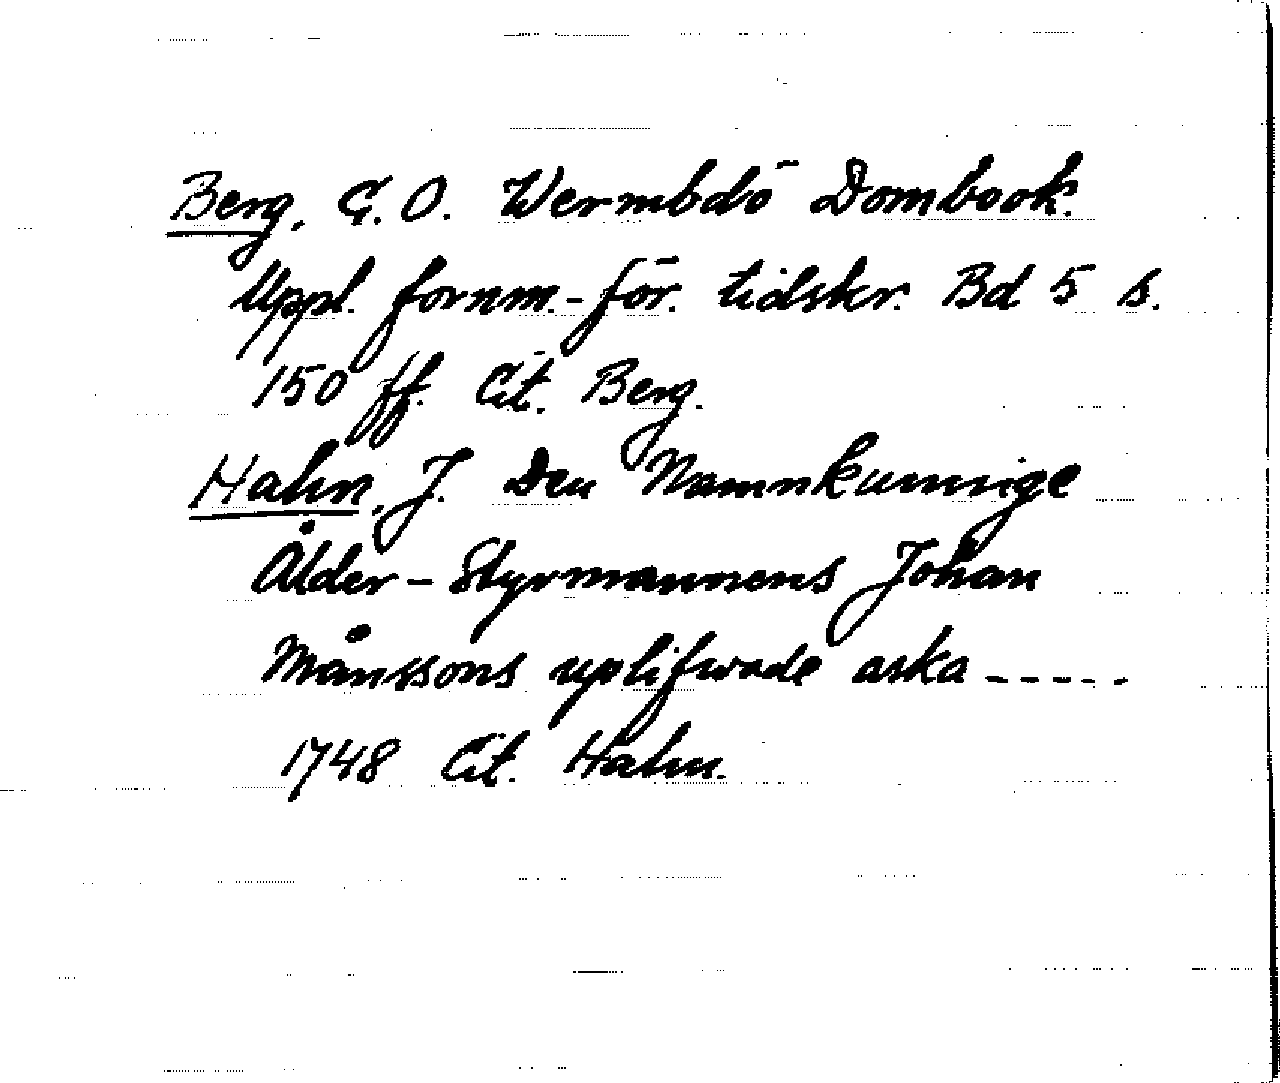 Berg, G. O. Wermbdö Dombook.
Uppl. fornm.-för. tidskr. Bd 5 s.
150 ff. Cit. Berg.
Hahn, J. Den Namnkunnige
Ålder-Styrmannens Johan
Månssons uplifwade aska -----
1748 Cit. Hahn.